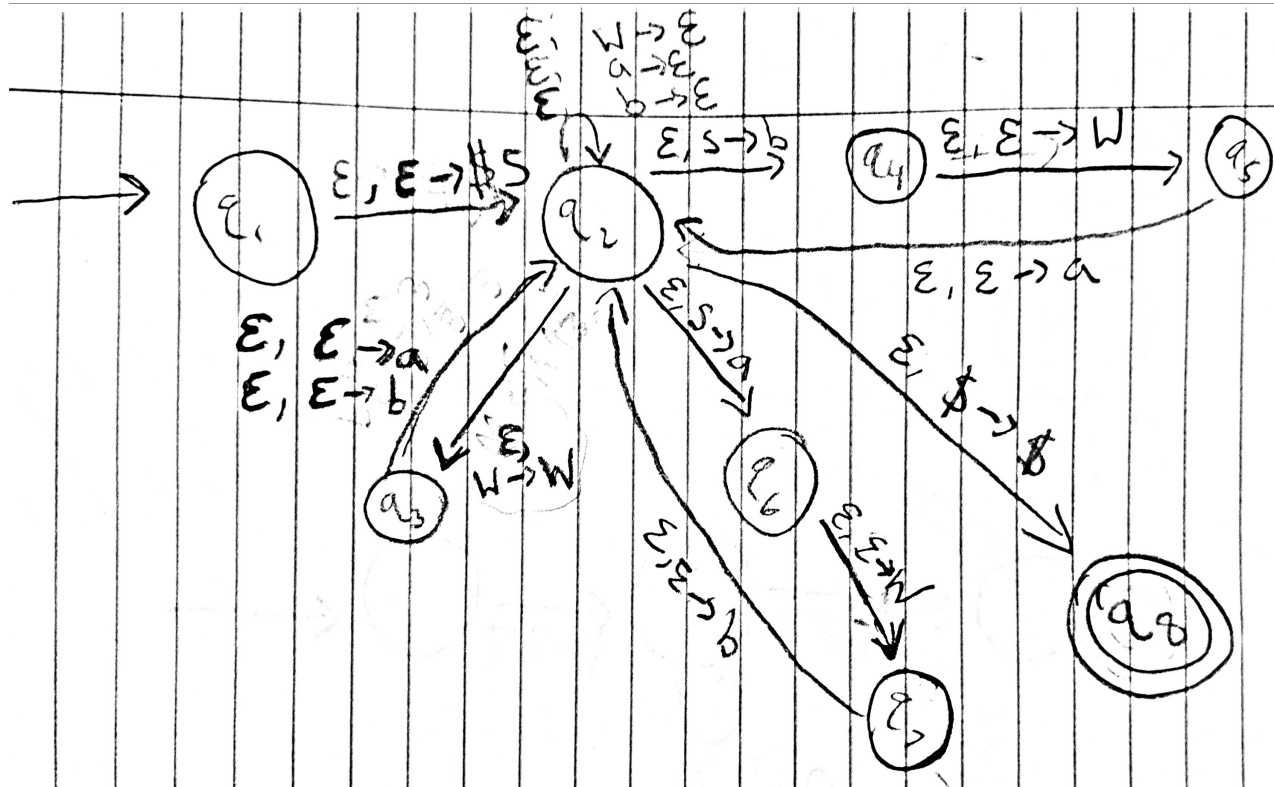 ε, M → ε
ε, a → ε
ε, b → ε
q₁
ε, ε → $S
q₂
ε, S → b
q₄
ε, ε → M
q₅
ε, ε → a
ε, ε → a
ε, ε → b
ε, M → M
q₃
ε, S → a
q₆
ε, ε → M
q₇
ε, ε → b
ε, $ → $
q₈